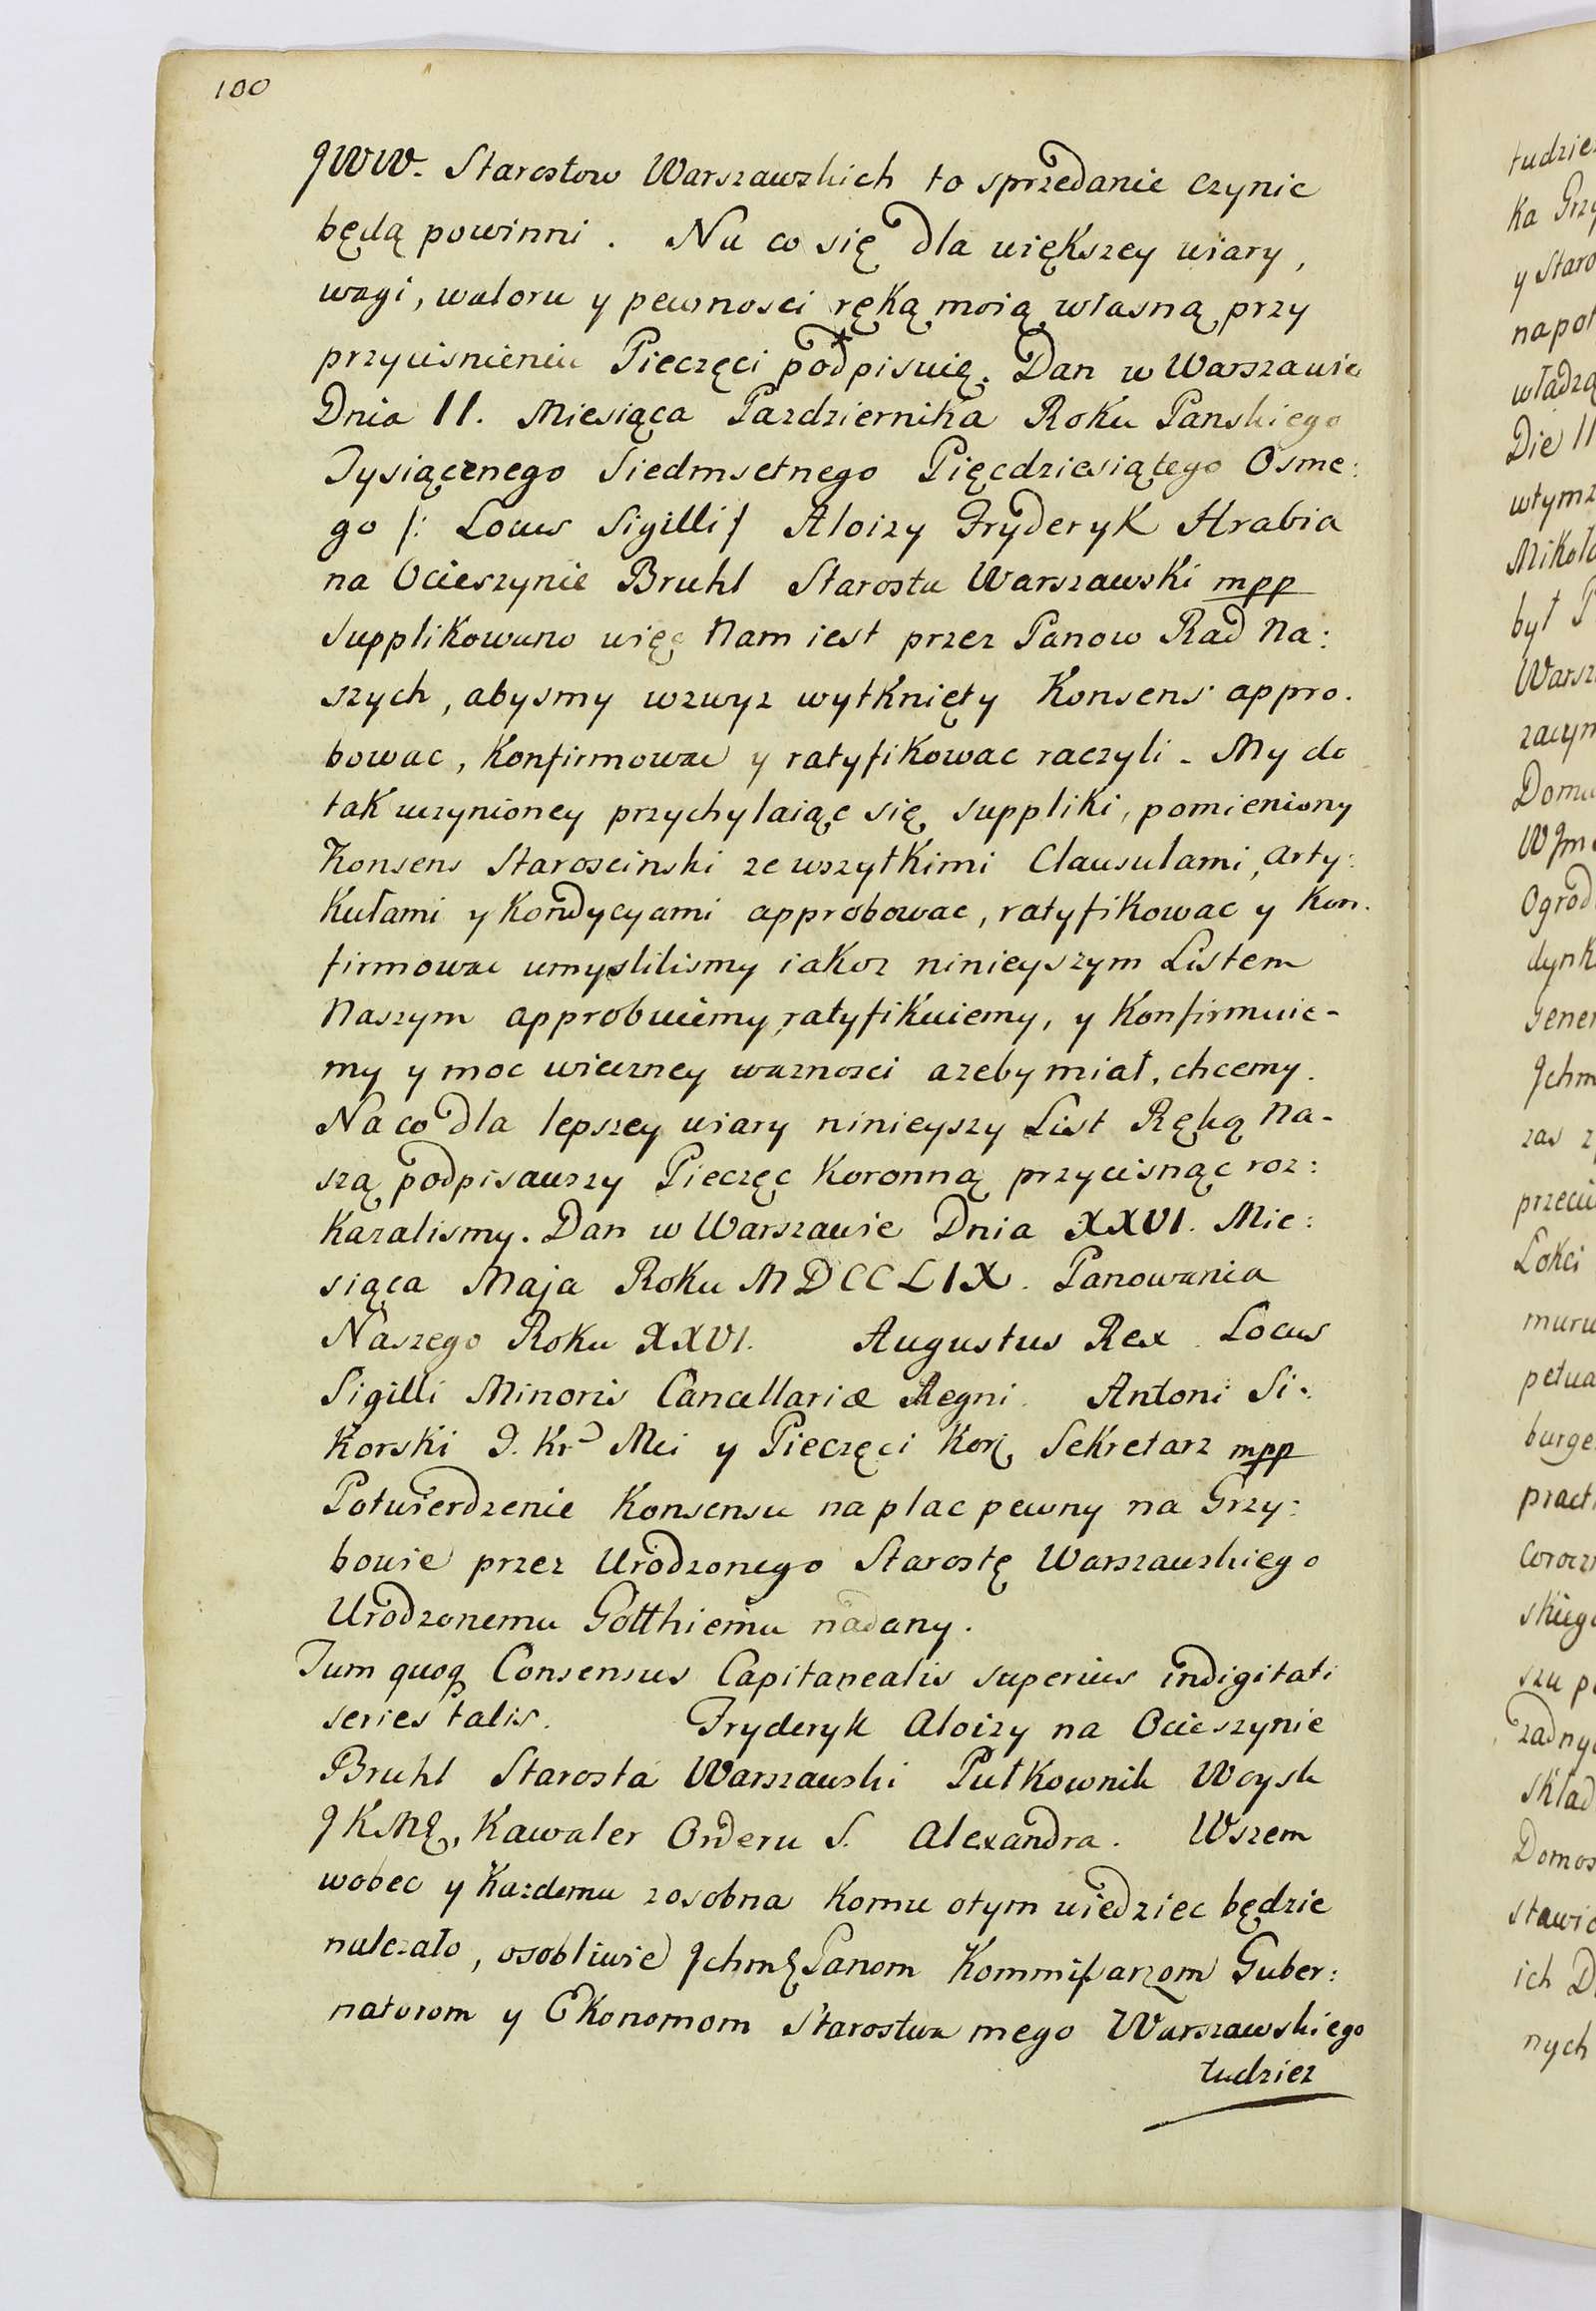 100
JWW. Starostow Warszawskich to sprzedanie czynic
będą powinni. Na co się dla większey wiary,
wagi, waloru y pewnosci ręką moią własną przy
przyciśnieniu Pieczęci podpisuię. Dan w Warszawie
Dnia 11. Miesiąca Pazdziernika Roku Panskiego
Tysiącznego Siedmsetnego Pięcdziesiątego Osme:
go /: Locus Sigilli / Aloizy Fryderyk Hrabia
na Ocieszynie Bruhl Starosta Warszawski mpp
Supplikowano więc Nam iest przez Panow Rad Na:
szych, abysmy wzwyz wytknięty Konsens appro.
bowac, Konfirmowac y ratyfikowac raczyli. My do
tak uczynioney przychylaiąc się suppliki, pomieniony
Konsens Staroscinski ze wszytkimi Clausulami, arty:
kułami y Kondycyami approbowac, ratyfikowac y Kon.
firmowac umyslilismy iakoz ninieyszym Listem
Naszym approbuiemy, ratyfikuiemy, y Konfirmuie-
my y moc wieczney waznosci azeby miał, chcemy.
Na co dla lepszey wiary ninieyszy List Ręką Na-
szą podpisawszy Pieczęc Koronną przycisnąc roz:
kazalismy. Dan w Warszawie Dnia XXVI. Mie:
siąca Maja Roku MDCCLIX. Panowania
Naszego Roku XXVI. Augustus Rex. Locus
Sigilli Minoris Cancellariæ Regni. Antoni Si:
korski J. Kr Mci y Pieczęci Kor. Sekretarz mpp
Potwierdzenie Konsensu na plac pewny na Grzy:
bowie przez Urodzonego Starostę Warszawskiego
Urodzonemu Gotthiemu nadany.
Tum quoq Consensus Capitanealis superius indigitati
series talis. Fryderyk Aloizy na Ocieszynie
Bruhl Starosta Warszawski Pułkownik Woysk
JKMę, Kawaler Orderu S. Alexandra. Wszem
wobec y Kazdemu zosobna Komu otym wiedziec będzie
nalezało, osobliwie Jchmę Panom Kommissarzom Guber:
natorom y Ekonomom Starostwa mego Warszawskiego
tudziez
tudzie
ka Grzy
y Staro
napot
władzą
Die 11
wtymz
Mikoła
był P
Warsz
zacym
Domu
Ogrod
dynk
Gener
Jchm
zas z
Łokci
muru
petua
burge
pract
szu p
zadny
skład
Domos
stawic
ich D
nych